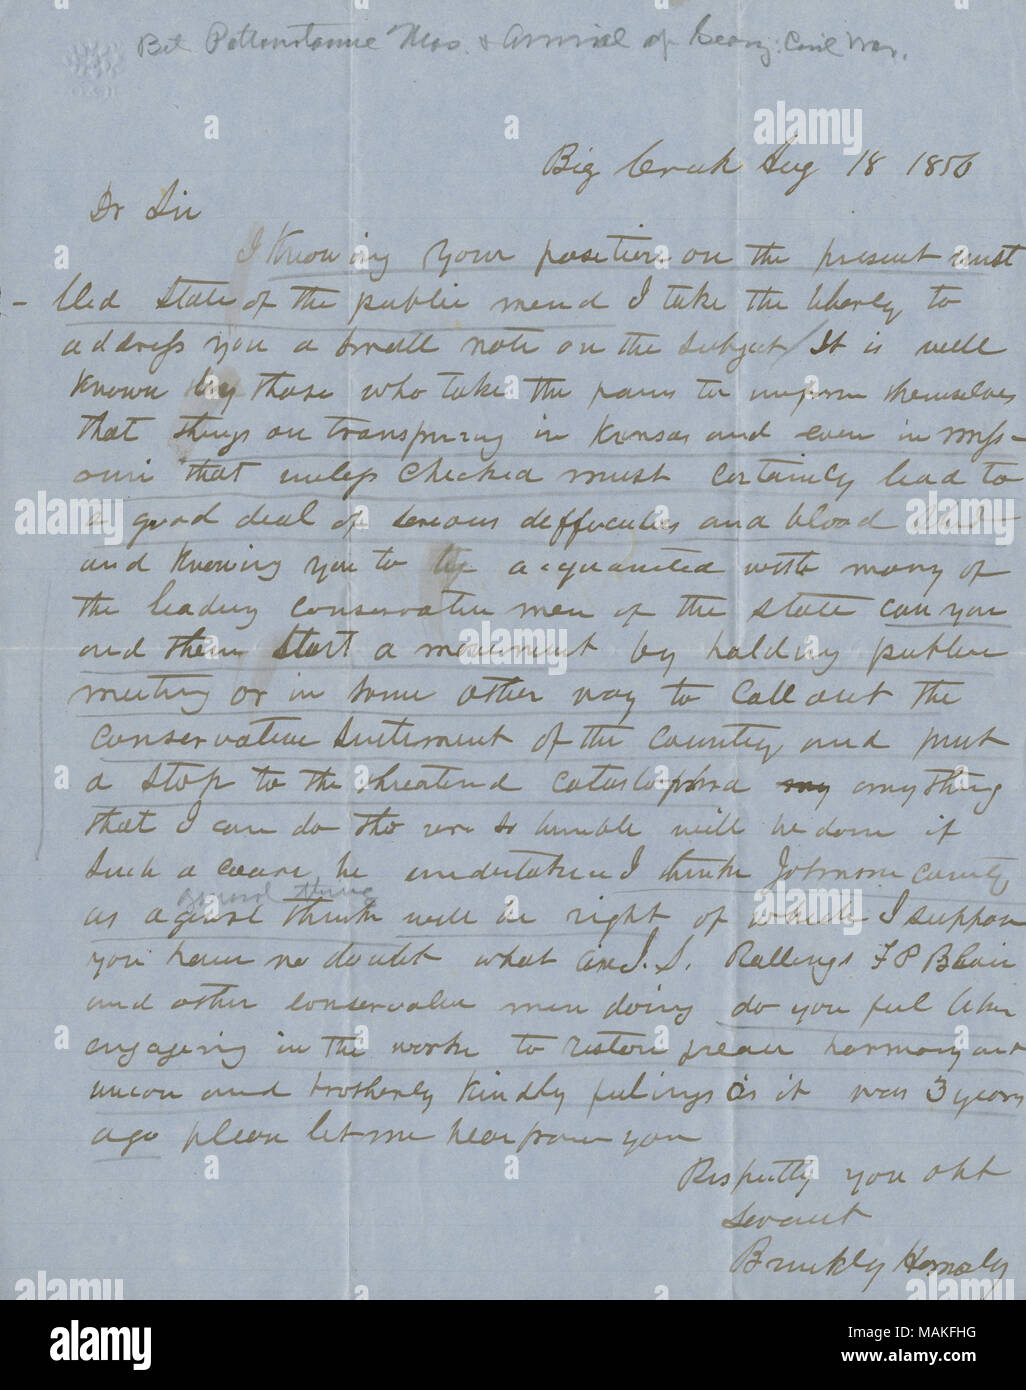 Bet Pottawatamie Mas. & Arrival of Geary: Civil War.
Big Creek Aug 18 1856
Dr Sir
I Knowing your position on the present unst
tled State of the public mind I take the liberty to
address you a small note on the subject It is well
Known by those who take the pains to inform themselves
that things are transpiring in Kansas and even in Miss-
ouri that unless checked must certainly lead to
a good deal of serious diffuculties and blood shed
and Knowing you to be acquainted with many of
the leading conservative men of the state can you
and them start a movement by holding public
meeting or in some other way to call out the
conservative sentiment of the country and put
a stop to the threatend catastophra my anything
that I can do tho ever so humble will be done if
such a coarse be undertaken I think Johnson County
general thing
as a genrl think will be right of which I suppose
you have no doubt what are J. S. Rollings F P Blair
and other conservative men doing do you feel like
engageing in the work to restore peace harmony and
union and brotherly Kindly feelings as it was 3 years
ago please let me hear from you
Respectly your obt
Servant
Brinkly Hornsby
alamy
Image ID: MAKFHG
www.alamy.com